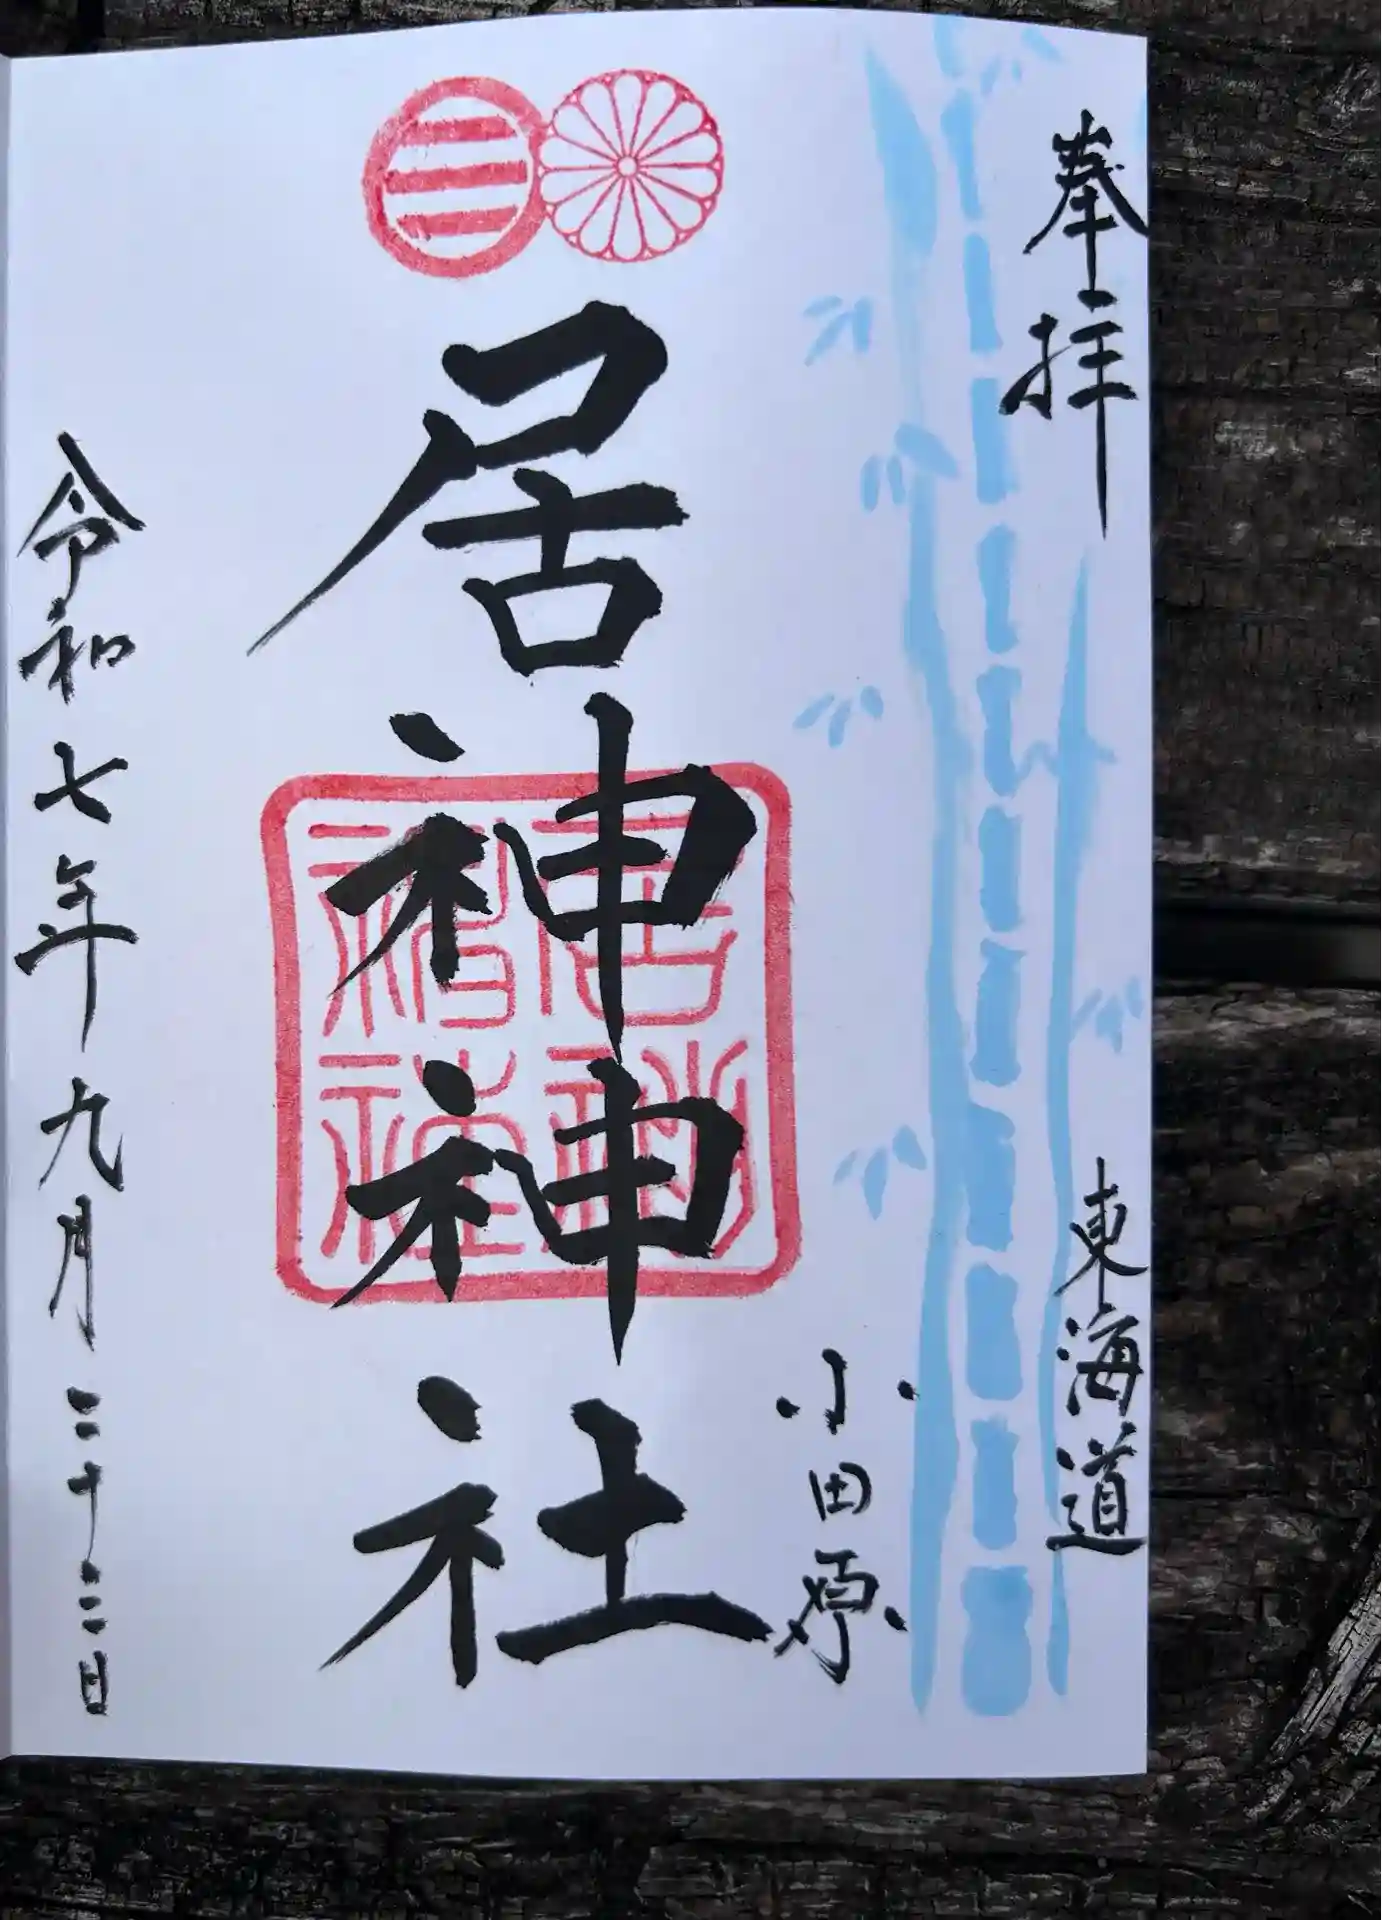 奉拝
東海道
小田原
居神神社
居神神社
令和七年九月二十二日